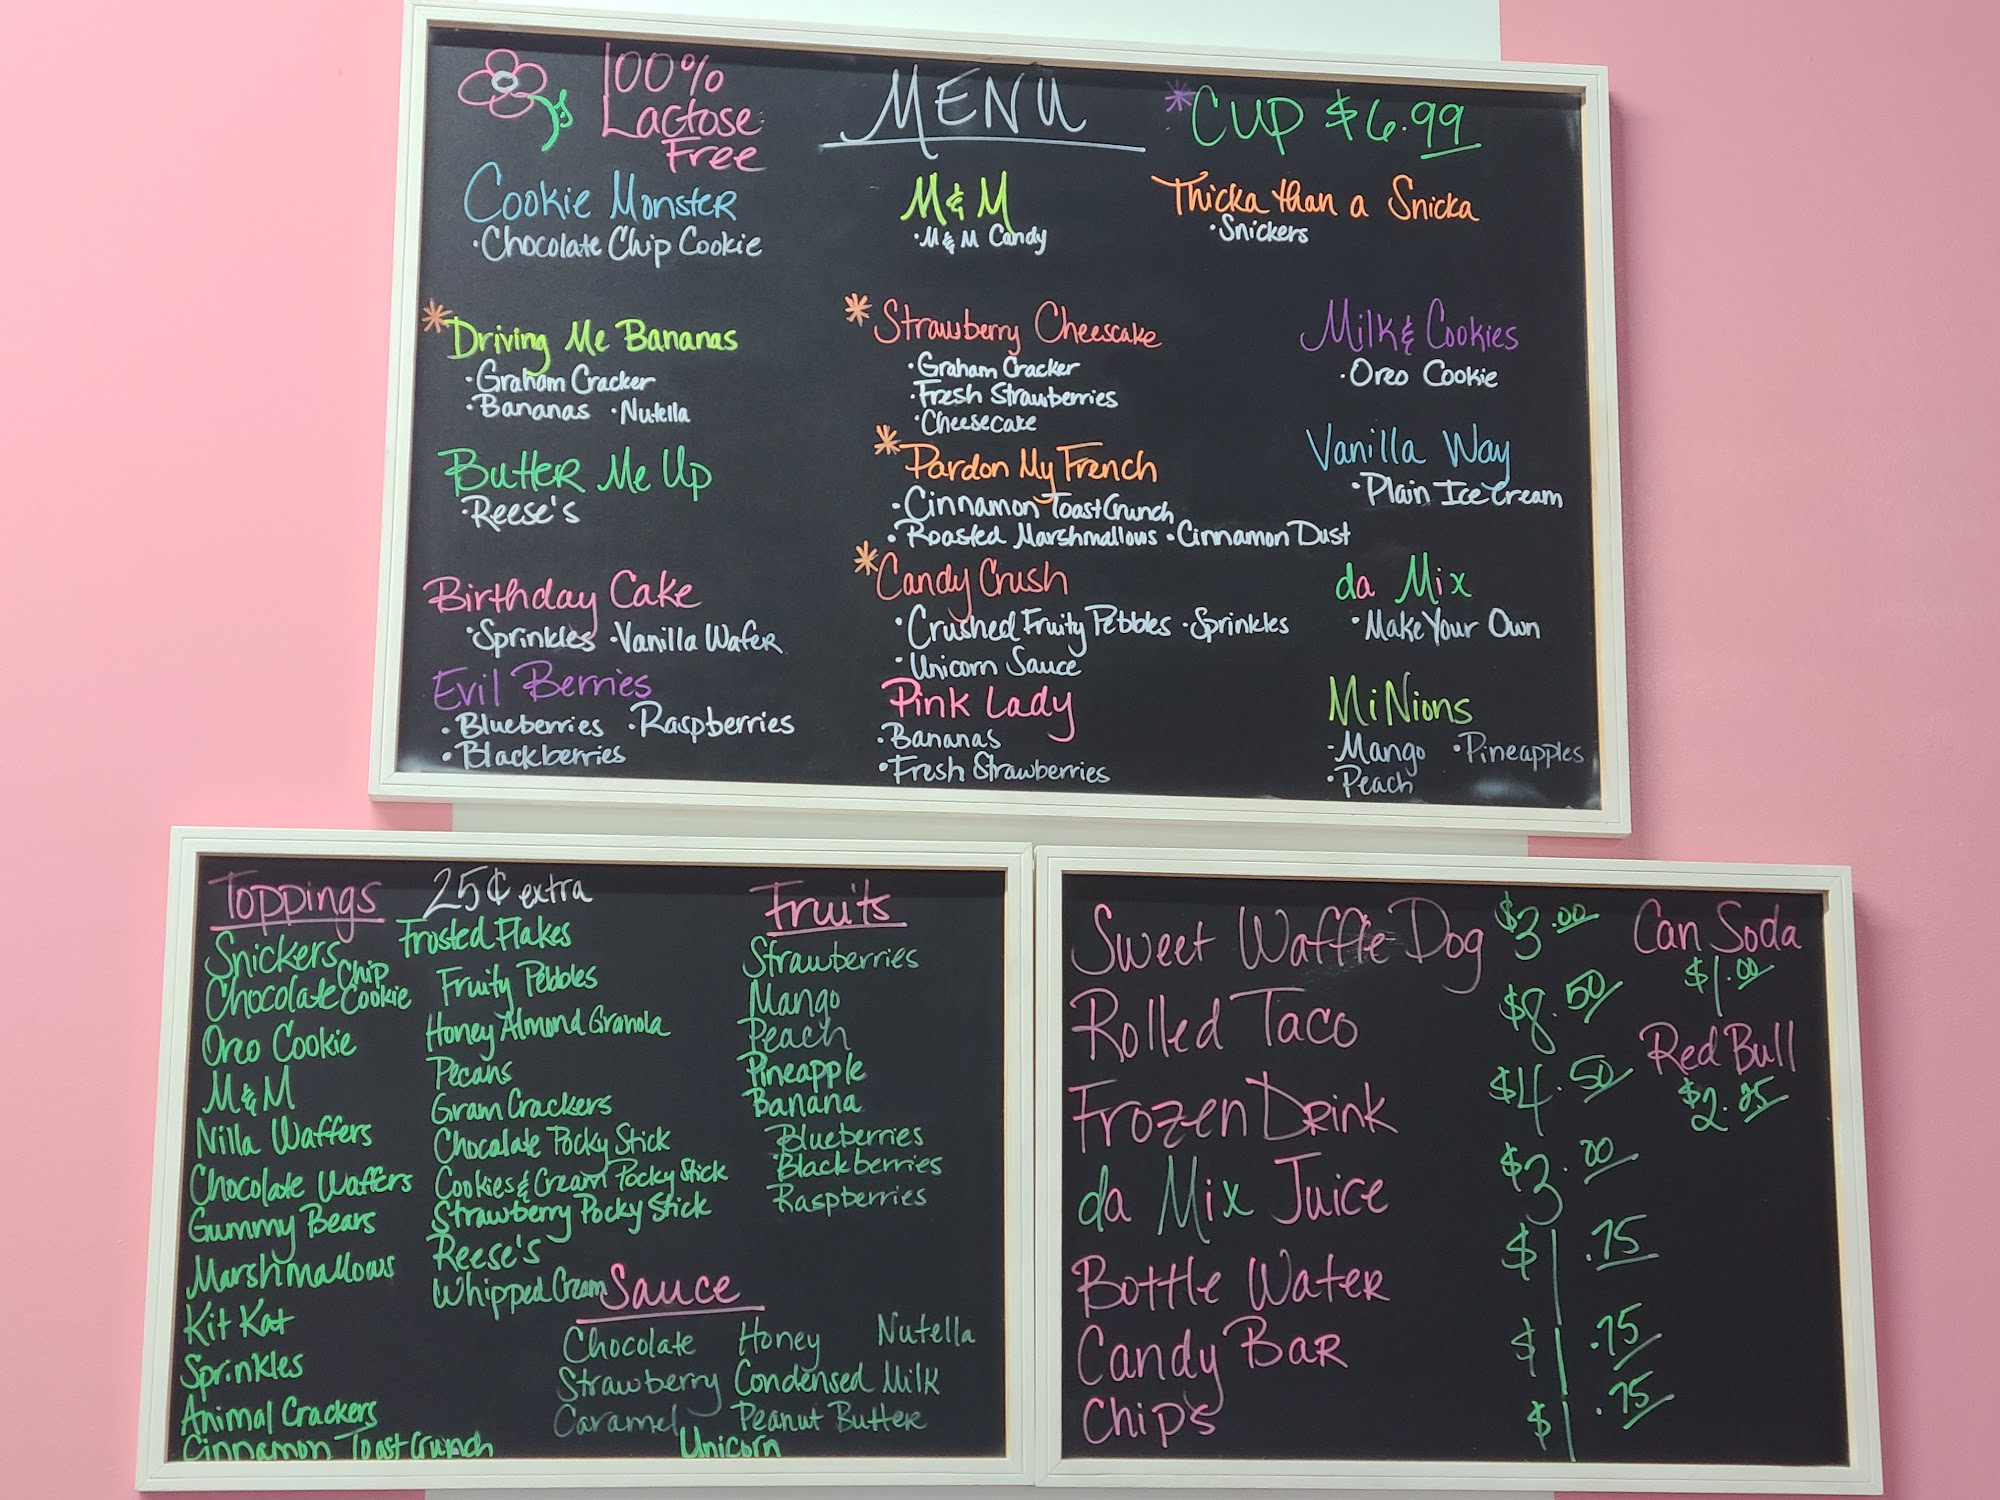 100%
Lactose
Free
MENU
*CUP $6.99
Cookie Monster
·Chocolate Chip Cookie
M&M
·M&M Candy
Thicka than a Snicka
·Snickers
*Driving Me Bananas
·Graham Cracker
·Bananas ·Nutella
*Strawberry Cheescake
·Graham Cracker
·Fresh Strawberries
·Cheesecake
Milk & Cookies
·Oreo Cookie
Butter Me Up
·Reese's
*Pardon My French
·Cinnamon Toast Crunch
·Roasted Marshmallows ·Cinnamon Dust
Vanilla Way
·Plain Ice Cream
Birthday Cake
·Sprinkles ·Vanilla Wafer
*Candy Crush
·Crushed Fruity Pebbles ·Sprinkles
·Unicorn Sauce
da Mix
·Make Your Own
Evil Berries
·Blueberries ·Raspberries
·Blackberries
Pink Lady
·Bananas
·Fresh Strawberries
MiNions
·Mango ·Pineapples
·Peach
Toppings 25¢ extra
Snickers
Chocolate Chip Cookie
Oreo Cookie
M&M
Nilla Waffers
Chocolate Waffers
Gummy Bears
Marshmallows
Kit Kat
Sprinkles
Animal Crackers
Cinnamon Toast Crunch
Frosted Flakes
Fruity Pebbles
Honey Almond Granola
Pecans
Gram Crackers
Chocolate Pocky Stick
Cookies & Cream Pocky Stick
Strawberry Pocky Stick
Reese's
Whipped Cream
Fruits
Strawberries
Mango
Peach
Pineapple
Banana
Blueberries
Blackberries
Raspberries
Sauce
Chocolate Honey Nutella
Strawberry Condensed Milk
Caramel Peanut Butter
Unicorn
Sweet Waffle Dog $3.00
Rolled Taco $8.50
Frozen Drink $4.50
da Mix Juice $3.00
Bottle Water $1.75
Candy Bar $1.75
Chips $1.75
Can Soda
$1.00
Red Bull
$2.95